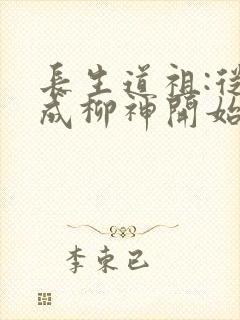 長生道祖:從
成柳神開始
李束已